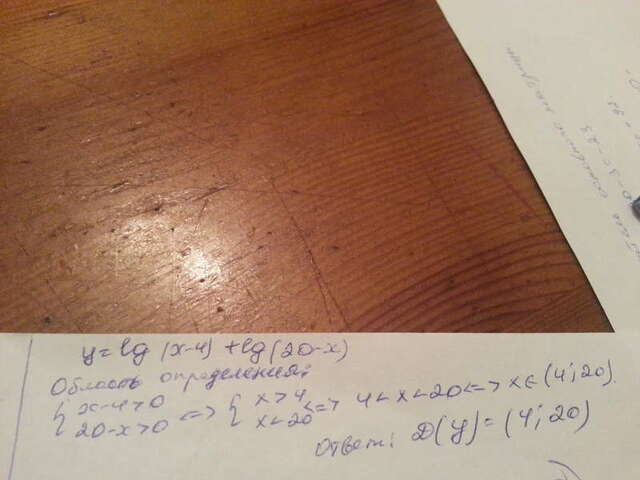 y=lg (x-4) +lg(20-x)
Область определения:
{ x-4>0
20-x>0 <=> { x>4
x<20 <=> 4<x<20 <=> x∈(4;20).
Ответ: D(y)=(4;20)